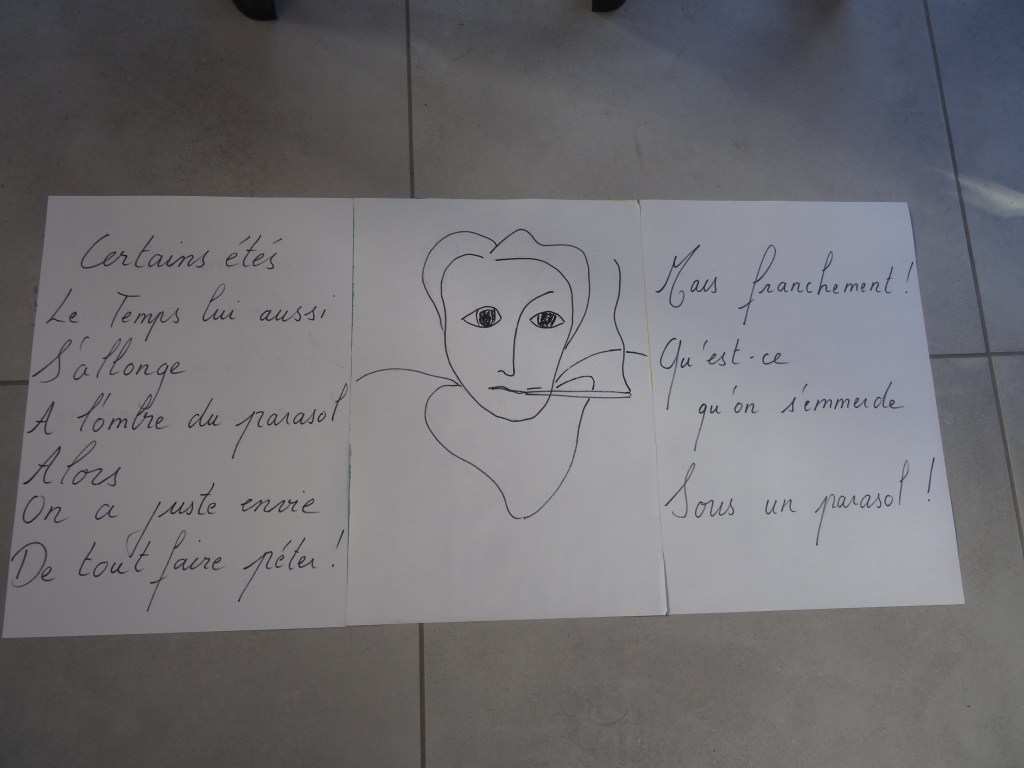 Certains étés
Le Temps lui aussi
S'allonge
A l'ombre du parasol
Alors
On a juste envie
De tout faire péter !
Mais franchement !
Qu'est-ce
qu'on s'emmerde
Sous un parasol !